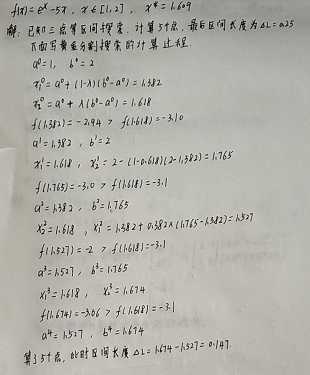 f(x) = eˣ - 5x , x ∈ [1,2] , x* = 1.609
解: 已知三点等区间搜索, 计算5个点, 最后区间长度为 ΔL = 0.25
下面写黄金分割搜索的计算过程.
a⁰ = 1 , b⁰ = 2
x₁⁰ = a⁰ + (1-λ)(b⁰-a⁰) = 1.382
x₂⁰ = a⁰ + λ(b⁰-a⁰) = 1.618
f(1.382) = -2.94 > f(1.618) = -3.10
a¹ = 1.382 , b¹ = 2
x₁¹ = 1.618 , x₂¹ = 2 - (1-0.618)(2-1.382) = 1.765
f(1.765) = -3.0 > f(1.618) = -3.1
a² = 1.382 , b² = 1.765
x₂² = 1.618 , x₁² = 1.382 + 0.382×(1.765-1.382) = 1.527
f(1.527) = -2 > f(1.618) = -3.1
a³ = 1.527 , b³ = 1.765
x₁³ = 1.618 , x₂³ = 1.674
f(1.674) = -3.06 > f(1.618) = -3.1
a⁴ = 1.527 , b⁴ = 1.674
算了5个点, 此时区间长度 ΔL = 1.674 - 1.527 = 0.147.